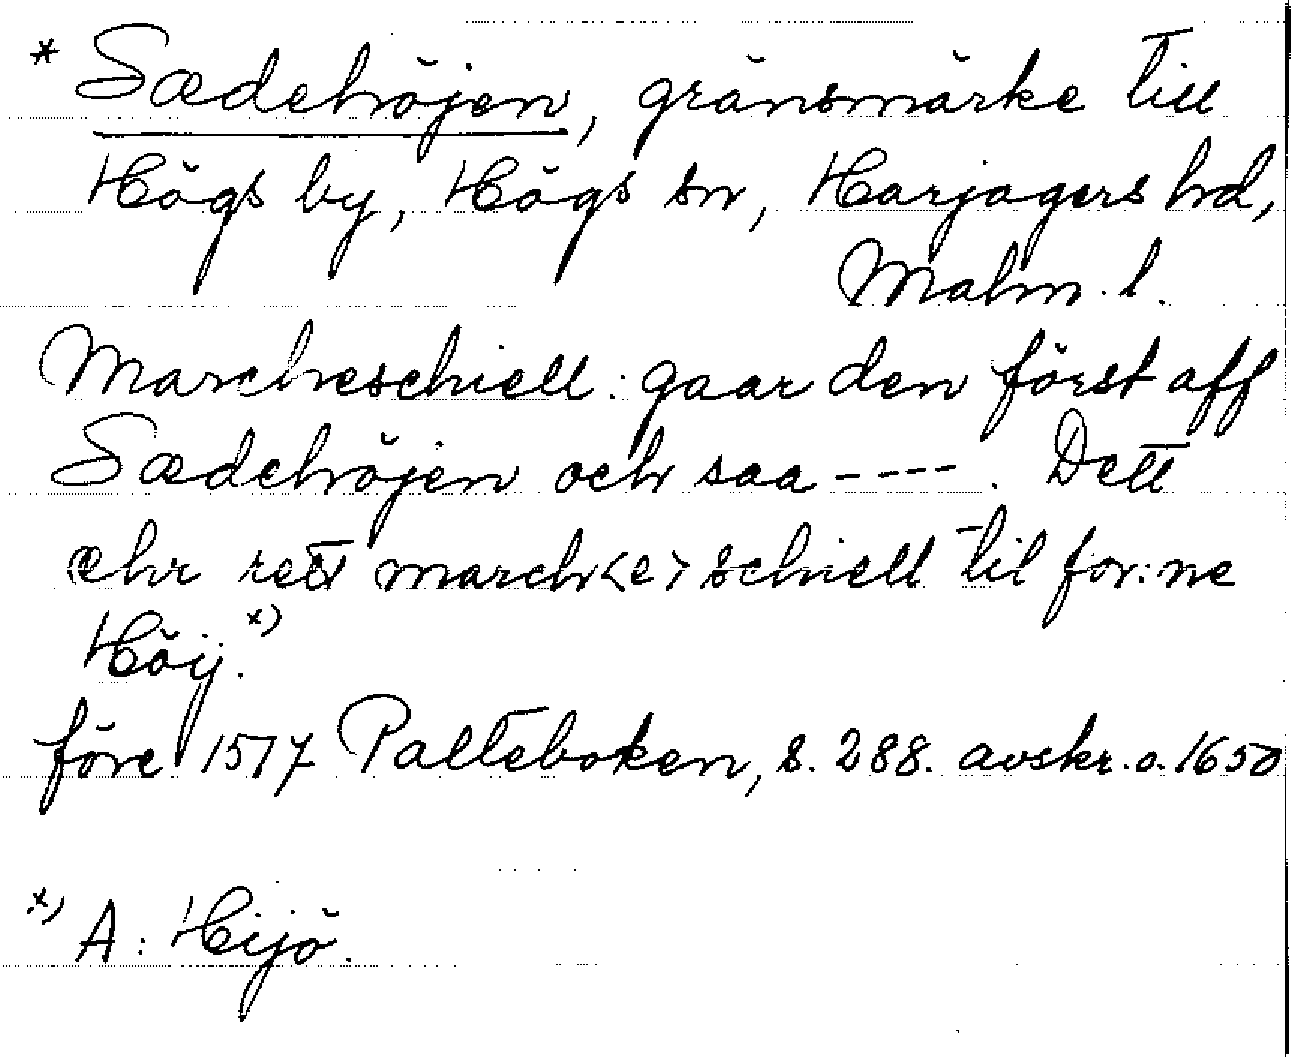 * Sædehöjen, gränsmärke till
Högs by, Högs sn, Harjagers hd,
Malm. l.
Marcheschiell: gaar den först aff
Sædehöjen och saa ----. Dett
ehr rett march<e>schiell til for:ne
Höij. x)
före 1517 Palteboken, s. 288. avskr. o. 1650
x) A: Hijö.